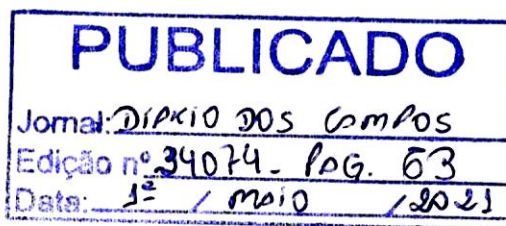 PUBLICADO
Jornal: DIÁRIO DOS CAMPOS
Edição nº 34074 - PÁG. 63
Data: 1º / MAIO / 2021